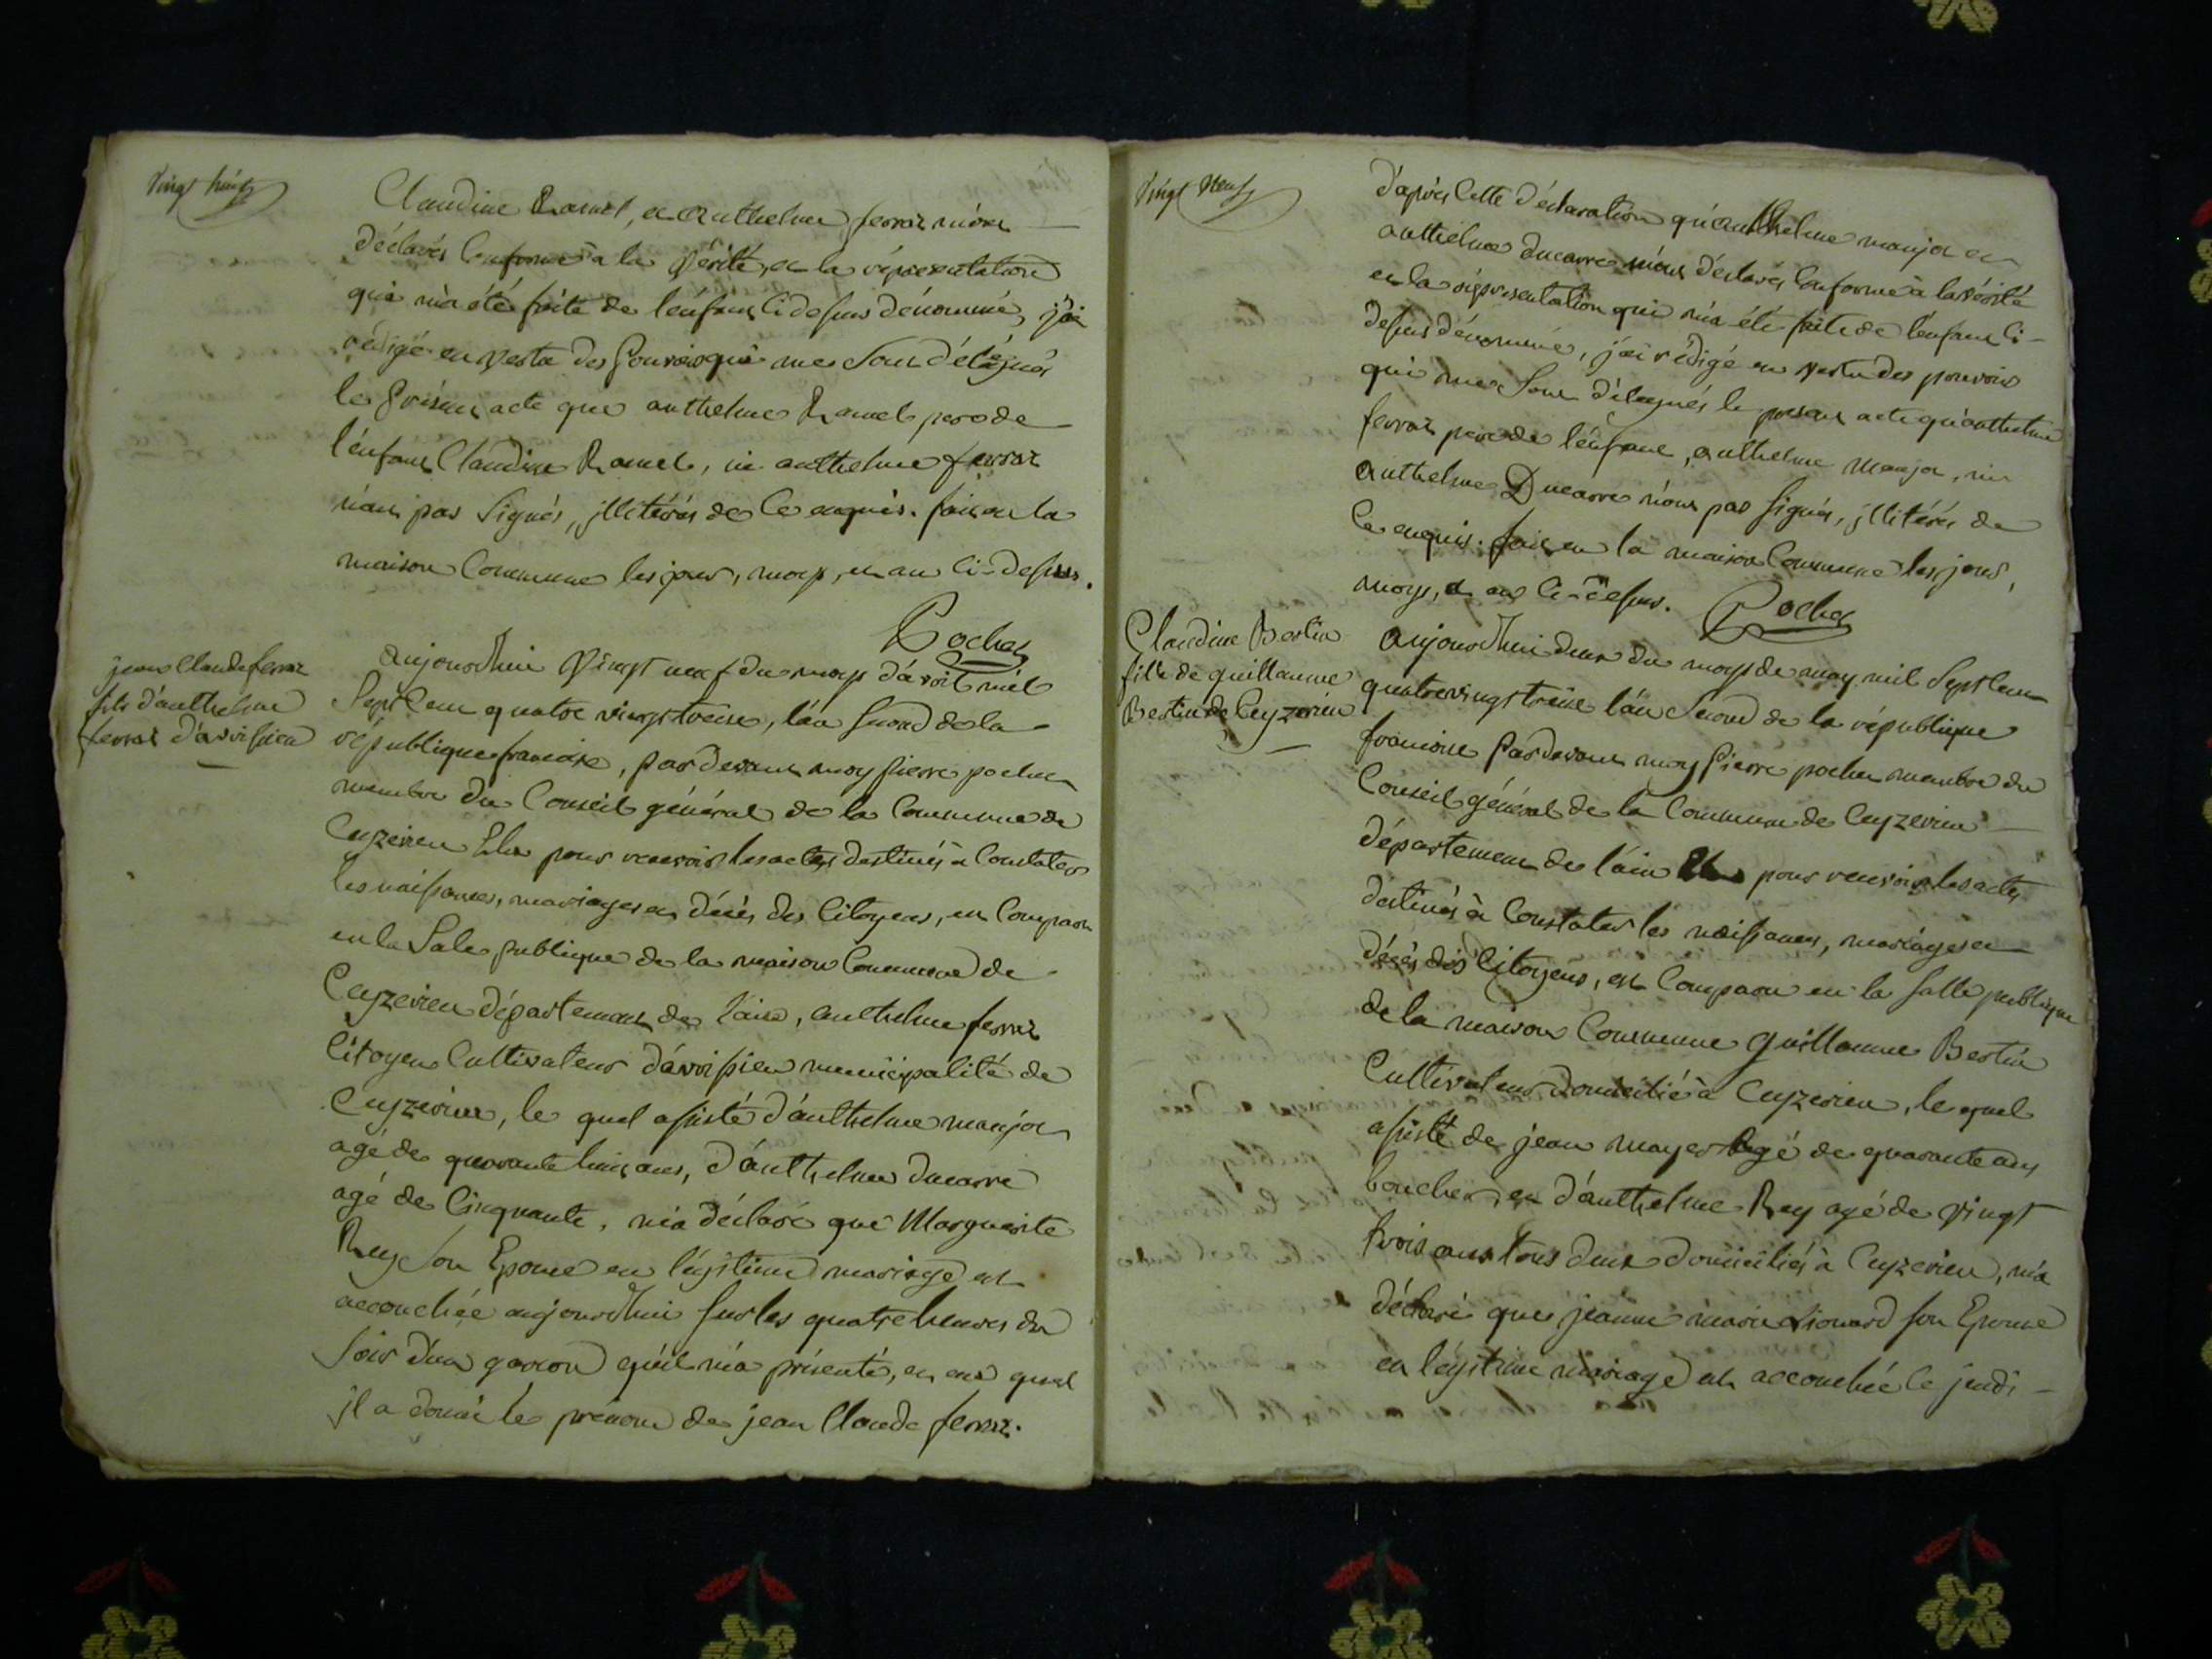 Vingt huit
Claudine Ramel, et Anthelme ferraz m'ont
déclarés conforme à la vérité, et la représentation
qui m'a été faite de l'enfant ci dessus dénommé, j'ai
rédigé en vertu des pouvoirs qui me sont délégués
le présent acte que anthelme Ramel pere de
l'enfant Claudine Ramel, ni anthelme ferraz
n'ont pas signés, illitérés de ce enquis. fait en la
maison Commune les jour, moys, et an ci-dessus.
Pochet
jean Claude ferraz
fils d'anthelme
ferraz d'avrissieu
aujourdhui vingt neuf du moys d'avril mil
Sept Cent quatre vingt treise, l'an second de la
république francoise, pardevant moy pierre pochet
membre du Conseil général de la Commune de
Ceyzerieu Elu pour recevoir les actes destinés à Constater
les naissances, mariages et décés des Citoyens, est Comparu
en la Sale publique de la maison Commune de
Ceyzerieu département de l'ain, anthelme ferraz
Citoyen Cultivateur d'avrissieu municipalité de
Ceyzerieu, le quel assisté d'anthelme manjot
agé de quarante huit ans, d'anthelme Ducarre
agé de Cinquante, m'a déclaré que Marguerite
Rey son Epouse en légitime mariage est
accouchée aujourdhui sur les quatre heures du
soir d'un garcon qu'il m'a présenté, et au quel
il a donné le prénom de jean Claude ferraz.
Vingt Neuf
d'après cette déclaration qu'anthelme manjot et
anthelme ducarre m'ont déclarés conforme à la vérité
et la représentation qui m'a été faite de l'enfant ci-
dessus dénommé, j'ai rédigé en vertu des pouvoirs
qui me sont délégués le present acte qu'anthelme
ferraz pere de l'enfant, anthelme manjot, ni
anthelme Ducarre n'ont pas signés, illitérés de
ce enquis. fait en la maison Commune les jour,
moys, et an ci-dessus. Pochet
Claudine Bertin
fille de guillaume
Bertin de Ceyzerieu
aujourdhui deux du moys de may mil Sept Cent
quatrevingt treise l'an Second de la république
francoise pardevant moy pierre pochet membre du
Conseil général de la Commune de Ceyzerieu
département de l'ain Elu pour recevoir les actes
destinés à Constater les naissances, mariages et
décés des Citoyens, est Comparu en la salle publique
de la maison Commune guillaume Bertin
Cultivateur domicilié à Ceyzerieu, le quel
assisté de jean mayer agé de quarante ans
boucher, et d'anthelme Rey agé de vingt
trois ans tous deux domiciliés à Ceyzerieu, m'a
déclaré que jeanne marie son Epouse
en légitime mariage est accouchée ce jeudi